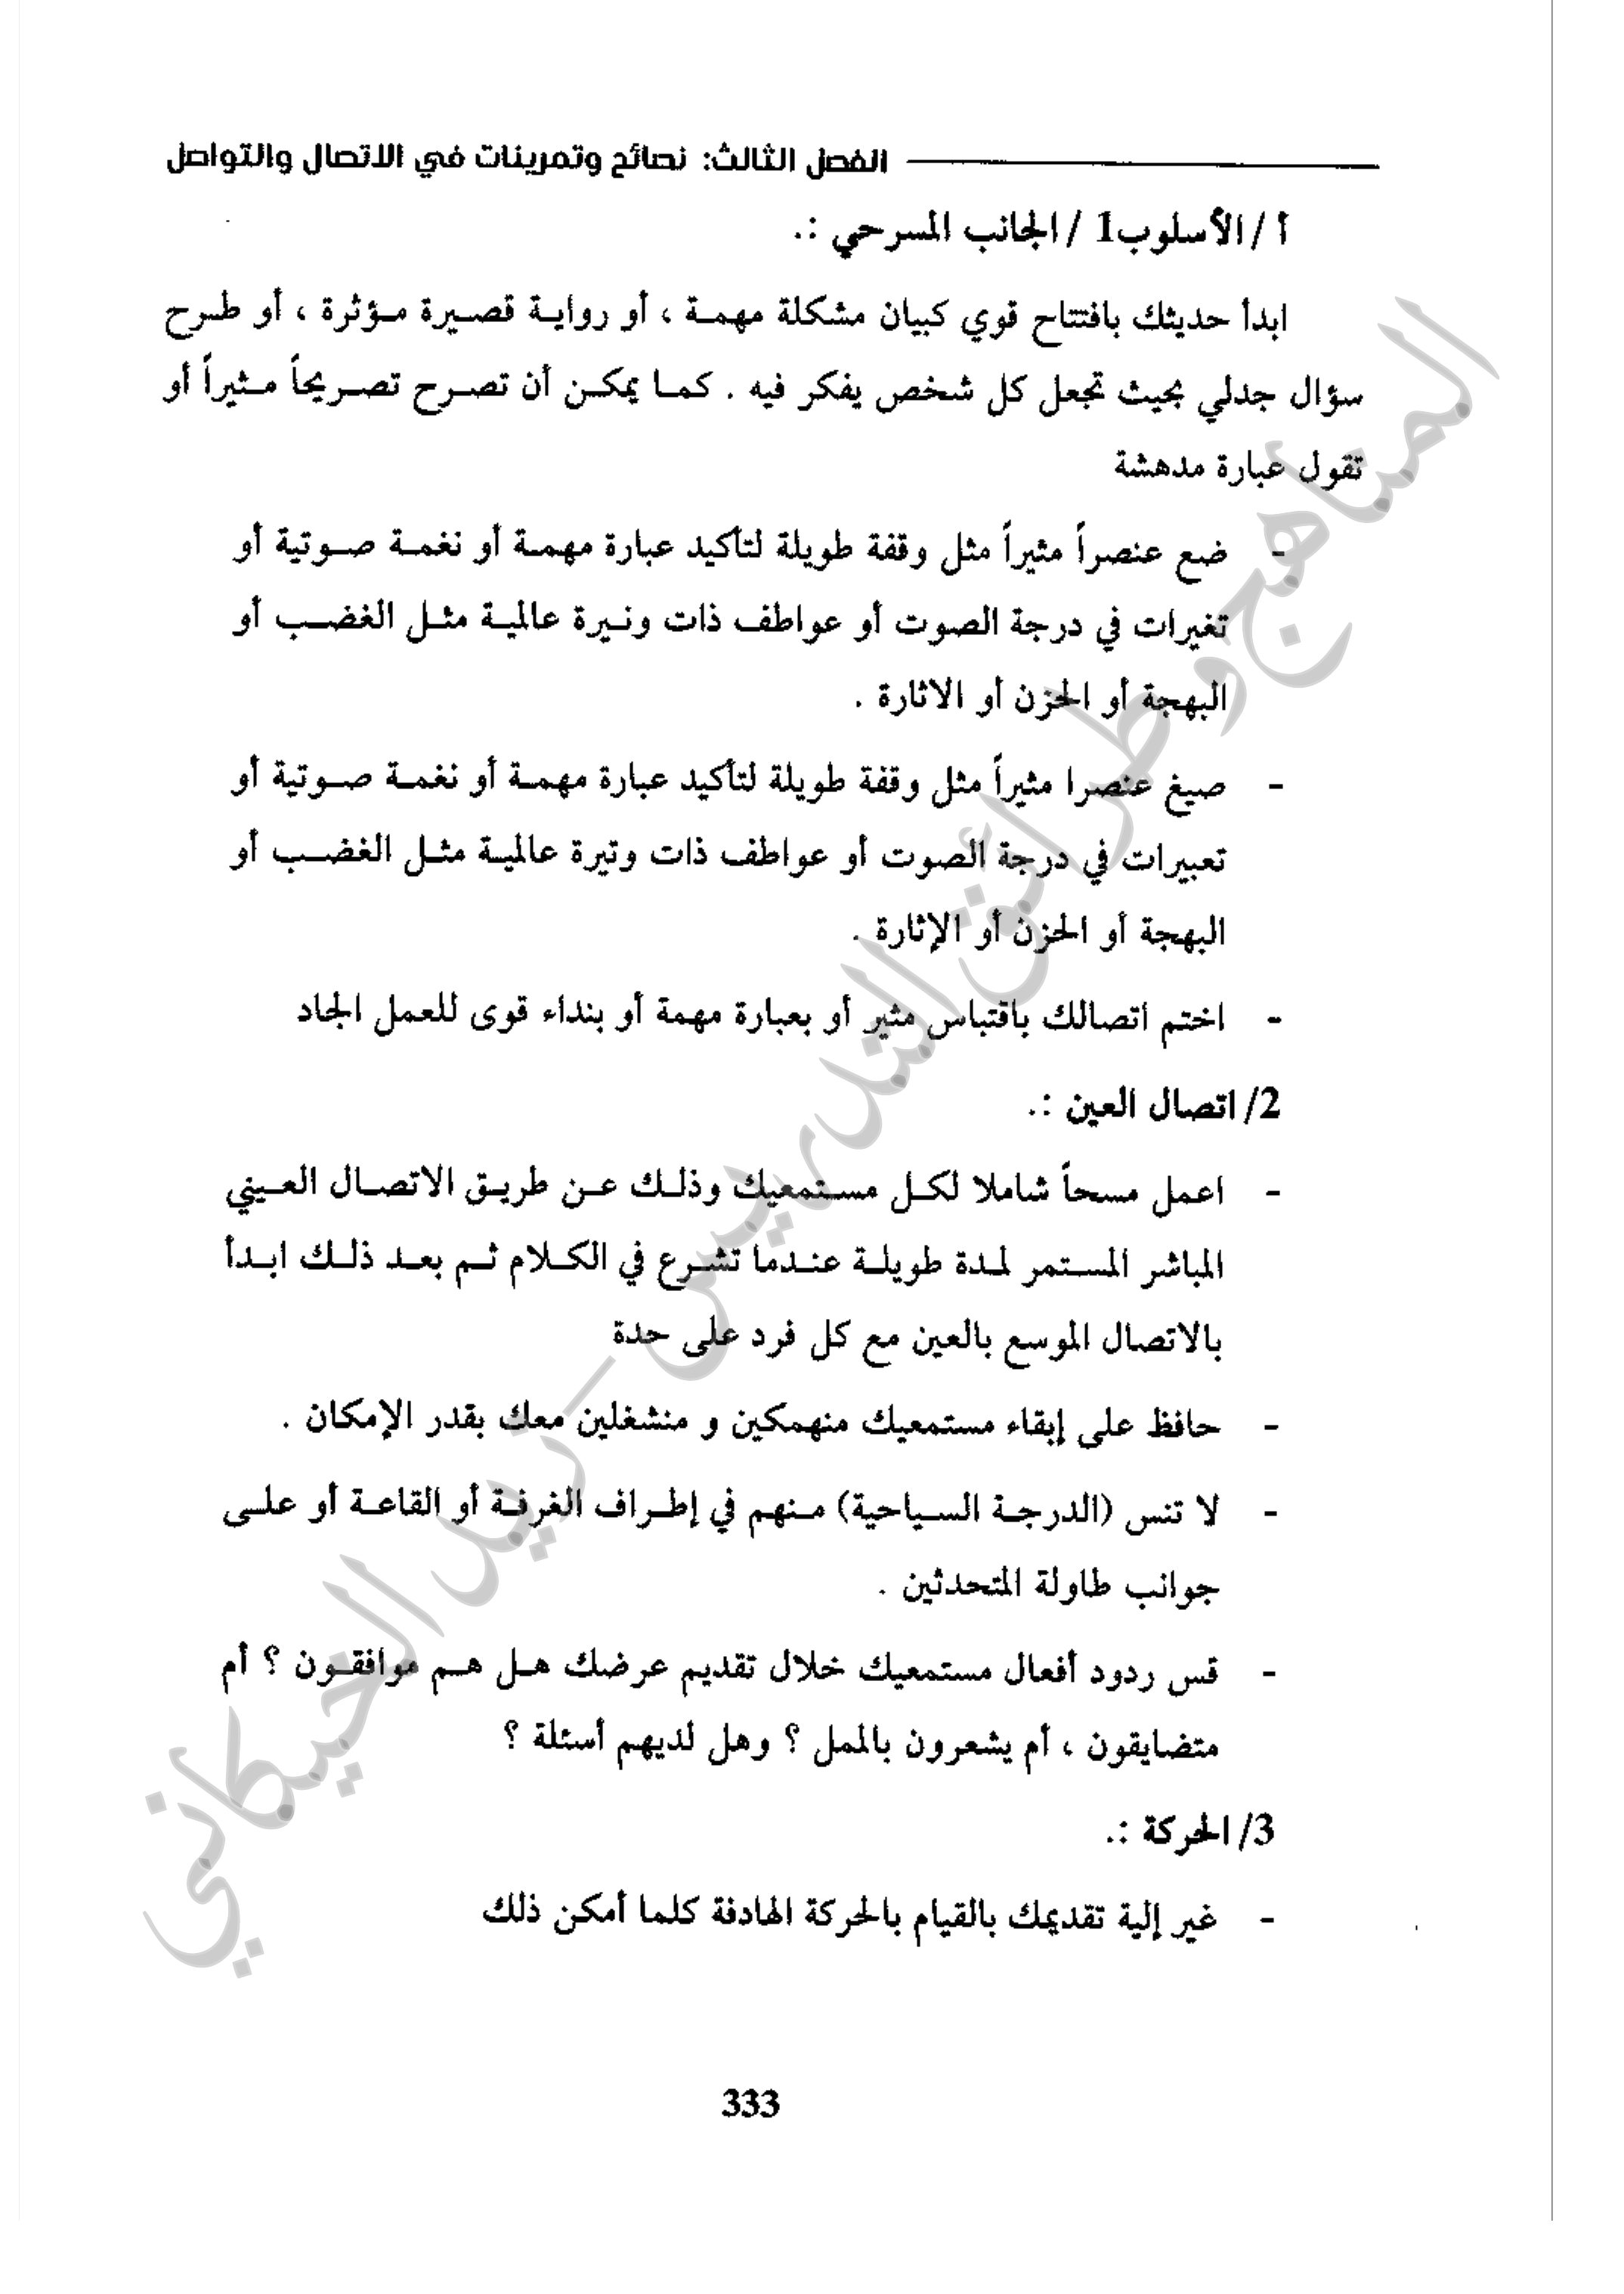 الفصل الثالث: نصائح وتمرينات في الاتصال والتواصل
أ / الأسلوب1 / الجانب المسرحي :.
ابدأ حديثك بافتتاح قوي كبيان مشكلة مهمة ، أو رواية قصيرة مؤثرة ، أو طرح
سؤال جدلي بحيث تجعل كل شخص يفكر فيه . كما يمكن أن تصرح تصريحاً مثيراً أو
تقول عبارة مدهشة
- ضع عنصراً مثيراً مثل وقفة طويلة لتأكيد عبارة مهمة أو نغمة صوتية أو
تغيرات في درجة الصوت أو عواطف ذات ونيرة عالمية مثل الغضب أو
البهجة أو الحزن أو الاثارة .
- صيغ عنصرا مثيراً مثل وقفة طويلة لتأكيد عبارة مهمة أو نغمة صوتية أو
تعبيرات في درجة الصوت أو عواطف ذات وتيرة عالمية مثل الغضب أو
البهجة أو الحزن أو الإثارة .
- اختم اتصالك باقتباس مثير أو بعبارة مهمة أو بنداء قوى للعمل الجاد
2/ اتصال العين :.
- اعمل مسحاً شاملا لكل مستمعيك وذلك عن طريق الاتصال العيني
المباشر المستمر لمدة طويلة عندما تشرع في الكلام ثم بعد ذلك ابدأ
بالاتصال الموسع بالعين مع كل فرد على حدة
- حافظ على إبقاء مستمعيك منهمكين و منشغلين معك بقدر الإمكان .
- لا تنس (الدرجة السياحية) منهم في إطراف الغرفة أو القاعة أو على
جوانب طاولة المتحدثين .
- قس ردود أفعال مستمعيك خلال تقديم عرضك هل هم موافقون ؟ أم
متضايقون ، أم يشعرون بالملل ؟ وهل لديهم أسئلة ؟
3/ الحركة :.
- غير إلية تقديمك بالقيام بالحركة الهادفة كلما أمكن ذلك
333
المناهج وطرائق التدريس – زيد الخيكاني